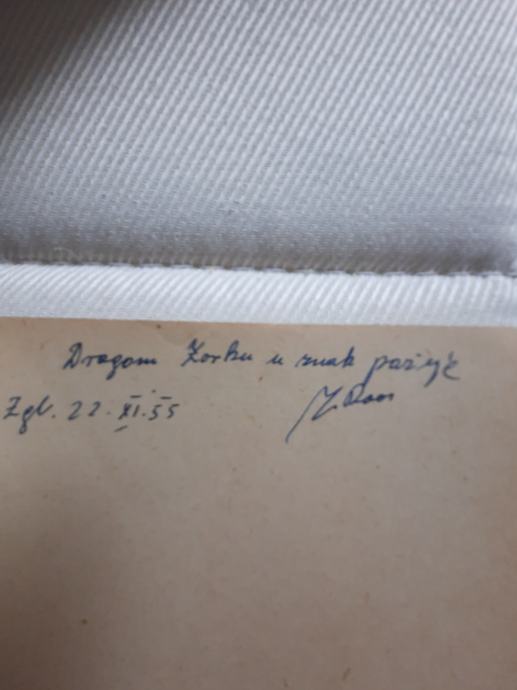 Dragom Zorku u znak pažnje
Zgb. 22.XI.55